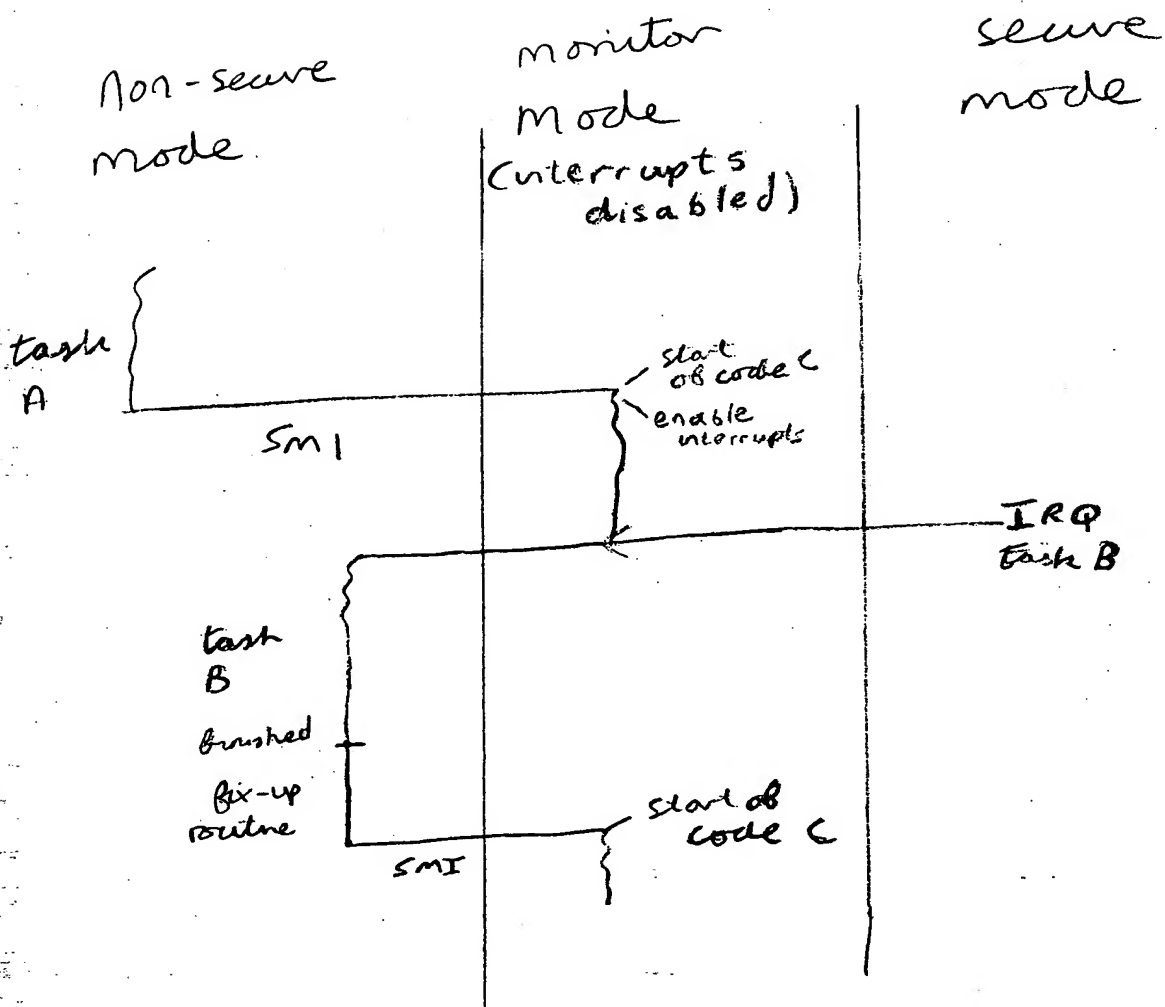 non-secure
mode
monitor
mode
(interrupts
disabled)
secure
mode
task
A
start
of code C
enable
interrupts
SMI
IRQ
task B
task
B
finished
fix-up
routine
start of
code C
SMI